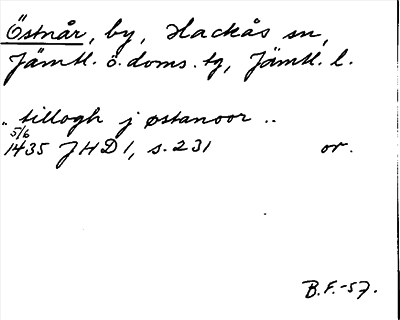 Östnår, by, Hackås sn,
Jämtl. ö. doms. tg, Jämtl. l.
.. tillogh j østanoor ..
5/6
1435 JHD 1, s. 231 or.
B.F.-57.